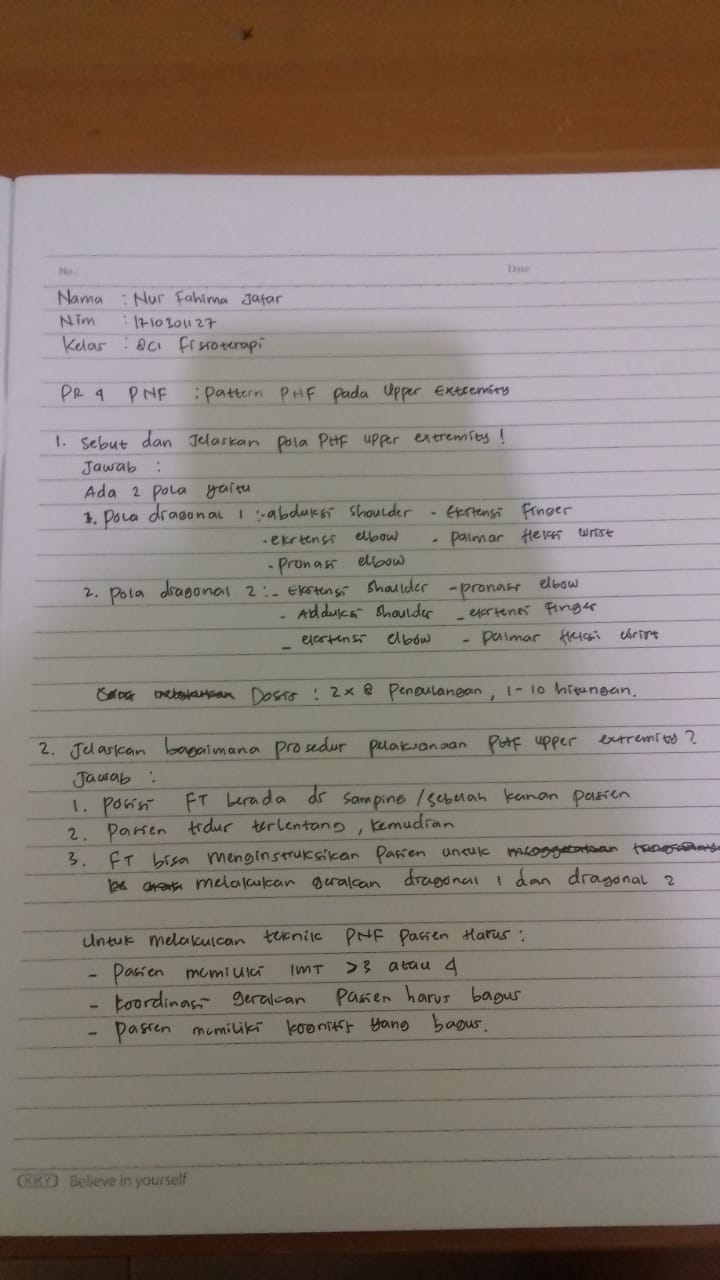 No.
Date
Nama : Nur Fahima Jafar
Nim : 1710301127
Kelas : 8C1 Fisioterapi
PR 4 PNF : Pattern PNF pada Upper Extremity
1. Sebut dan Jelaskan pola PNF upper extremity !
Jawab :
Ada 2 pola yaitu
1. Pola diagonal 1 : - abduksi shoulder - Ekstensi finger
- ekstensi elbow - palmar fleksi wrist
- Pronasi elbow
2. Pola diagonal 2 : - Ekstensi shoulder - pronasi elbow
- Adduksi shoulder - ekstensi finger
- ekstensi elbow - palmar fleksi wrist
Dosis : 2 x 8 Pengulangan, 1-10 hitungan.
2. Jelaskan bagaimana prosedur pelaksanaan PNF upper extremity ?
Jawab :
1. Posisi FT berada di samping / sebelah kanan pasien
2. Pasien tidur terlentang, kemudian
3. FT bisa menginstruksikan Pasien untuk
melakukan gerakan diagonal 1 dan diagonal 2
Untuk melakukan teknik PNF Pasien Harus :
- Pasien memiliki IMT >3 atau 4
- Koordinasi gerakan Pasien harus bagus
- Pasien memiliki kognitif yang bagus.
KKY Believe in yourself